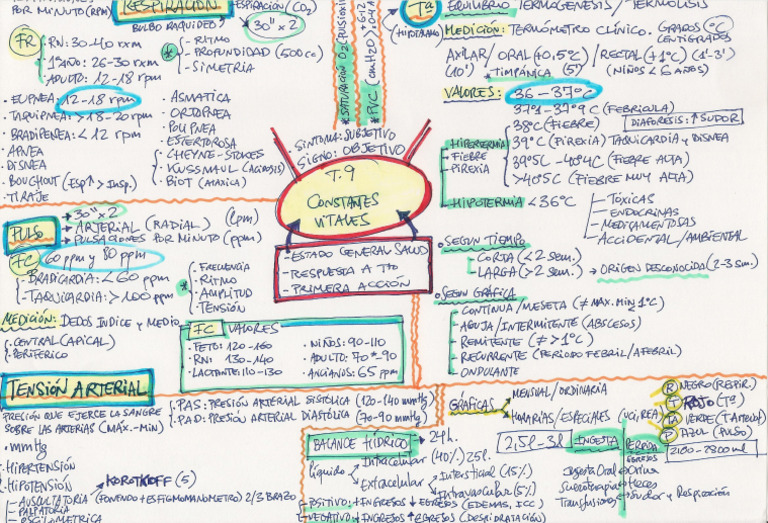 POR MINUTO (RPM)
RESPIRACIÓN
ESPIRACIÓN (CO₂)
BULBO RAQUÍDEO
30'' x 2
FR
RN: 30-40 rxm
1º AÑO: 26-30 rxm
ADULTO: 12-18 rpm
* - RITMO
- PROFUNDIDAD (500 cc)
- SIMETRÍA
- EUPNEA: 12-18 rpm
- TAQUIPNEA: >18-20 rpm
- BRADIPENEA: < 12 rpm
- APNEA
- DISNEA
- BOUCHOUT (Esp ↑ > Insp.)
- TIRAJE
- ASMATICA
- ORTOPNEA
- POLIPNEA
- ESTERTOROSA
- CHEYNE-STOKES
- KUSSMAUL (ACIDOSIS)
- BIOT (ATAXICA)
* SATURACIÓN O₂
* PVC (cmH₂O)
- SINTOMA: SUBJETIVO
SIGNO: OBJETIVO
T.9
CONSTANTES
VITALES
- ESTADO GENERAL SALUD
- RESPUESTA A TTO
- PRIMERA ACCIÓN
Tª
EQUILIBRIO TERMOGENESIS / TERMOLISIS
MEDICIÓN: TERMÓMETRO CLÍNICO. GRADOS (ºC)
CENTIGRADOS
AXILAR/ ORAL (+0,5ºC) / RECTAL (+1ºC) (1'-3')
(10') * TIMPÁNICA (5') (NIÑOS < 6 AÑOS)
VALORES: 36-37ºC
37º1-37º9 C (FEBRICULA)
38ºC (FIEBRE) DIAFORESIS: ↑ SUDOR
HIPERTERMIA
- FIEBRE
- PIREXIA
39ºC (PIREXIA) TAQUICARDIA y DISNEA
39º5C - 40º4C (FIEBRE ALTA)
>40º5C (FIEBRE MUY ALTA)
HIPOTERMIA < 36ºC
- TÓXICAS
- ENDOCRINAS
- MEDICAMENTOSAS
- ACCIDENTAL / AMBIENTAL
SEGUN TIEMPO
- CORTA (<2 sem.)
- LARGA (>2 sem.) → ORIGEN DESCONOCIDO (2-3 Sem.)
SEGUN GRÁFICA
- CONTÍNUA / MESETA (≠ MAX. MIN ≯ 1ºC)
- AGUJA / INTERMITENTE (ABSCESOS)
- REMITENTE (≠ > 1ºC)
- RECURRENTE (PERIODO FEBRIL / AFEBRIL)
- ONDULANTE
PULSO
→ 30'' x 2
→ ARTERIAL (RADIAL) (lpm)
→ PULSACIONES POR MINUTO (ppm)
FC 60 ppm y 80 ppm
- BRADICARDIA: < 60 ppm
- TAQUICARDIA: > 100 ppm
* - FRECUENCIA
- RITMO
- AMPLITUD
- TENSIÓN
MEDICIÓN: DEDOS INDICE y MEDIO
- CENTRAL (APICAL)
- PERIFERICO
FC VALORES
- FETO: 120-160
- RN: 130-140
- LACTANTE: 110-130
- NIÑOS: 90-110
- ADULTO: 70*-90
- ANCIANOS: 65 ppm
TENSIÓN ARTERIAL
PRESIÓN QUE EJERCE LA SANGRE
SOBRE LAS ARTERIAS (MAX.-MIN)
- P.A.S: PRESIÓN ARTERIAL SISTÓLICA (120-140 mmHg)
- P.A.D: PRESIÓN ARTERIAL DIASTÓLICA (70-90 mmHg)
- mmHg
- HIPERTENSIÓN
- HIPOTENSIÓN
→ KOROTKOFF (5)
- AUSCULTATORIA (FONENDO + ESFIGMOMANOMETRO) 2/3 BRAZO
- PALPATORIA
- OSCILOMETRICA
BALANCE HÍDRICO → 24h.
Líquido
Intracelular (40%) 25l.
Extracelular
Intersticial (15%)
Intravascular (5%)
- POSITIVO: + INGRESOS ↓ EGRESOS (EDEMAS, ICC)
- NEGATIVO: + INGRESOS ↑ EGRESOS (DESHIDRATACIÓN)
GRÁFICAS
MENSUAL / ORDINARIA
HORARIAS / ESPECIALES (UCI, REA)
R NEGRO (RESPIR.)
T ROJO (Tª)
TA VERDE (T Arterial)
P AZUL (PULSO)
2,5l-3l INGESTA
PÉRDIDA
EGRESOS
2100-2800 ml
Ingesta Oral
Sueroterapia
Transfusiones
Orina
Heces
Sudor y Respiración